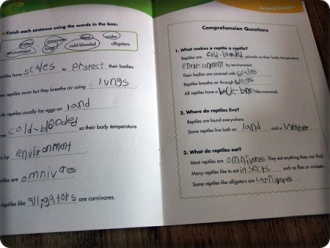 Finish each sentence using the words in the box.
cold blooded
alligators
reptiles have scales to protect their bodies.
reptiles swim but they breathe air using lungs
reptiles usually lay eggs on land
are cold-blooded so their body temperature
by environmant
reptiles are omnivares
reptiles like alligators are carnivores.
Comprehension Questions
1. What makes a reptile a reptile?
Reptiles are cold-blooded animals so their body temperature
by environment.
Their bodies are covered with scales
Reptiles breathe air through
All reptiles have a back-bone like mammals.
2. Where do reptiles live?
Reptiles are found everywhere.
Some reptiles live both on land and in
3. What do reptiles eat?
Most reptiles are omnivores. They eat anything they can find.
Many reptiles like to eat insects such as flies or crickets.
Some reptiles like alligators are